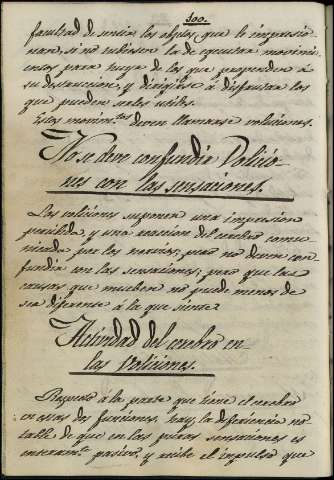 300.
facultad de sentir los objetos, que le impresio-
nan, si no tubiesen la de egecutar movimi-
entos para huyr de los que propenden a
su destruccion, y dirigirse á disfrutar los
que pueden serles utiles.
Estos movim.tos deven llamarse voliciones.
No se deve confundir Volicio-
nes con las sensaciones.
Las voliciones suponen una impresion
percibida, y una reaccion del cerebro comu-
nicada por los nervios; pero no deven con-
fundir con las sensaciones; pero que las
causas que mueben no puede menos de
ser diferente á la que siente.
Actividad del cerebro en
las voliciones.
Respecto á la parte que tiene el cerebro
en estas dos funciones, hay la diferiencia no-
table de que en las puras sensaciones es
enteram.te pasivo, y recibe el impulso que